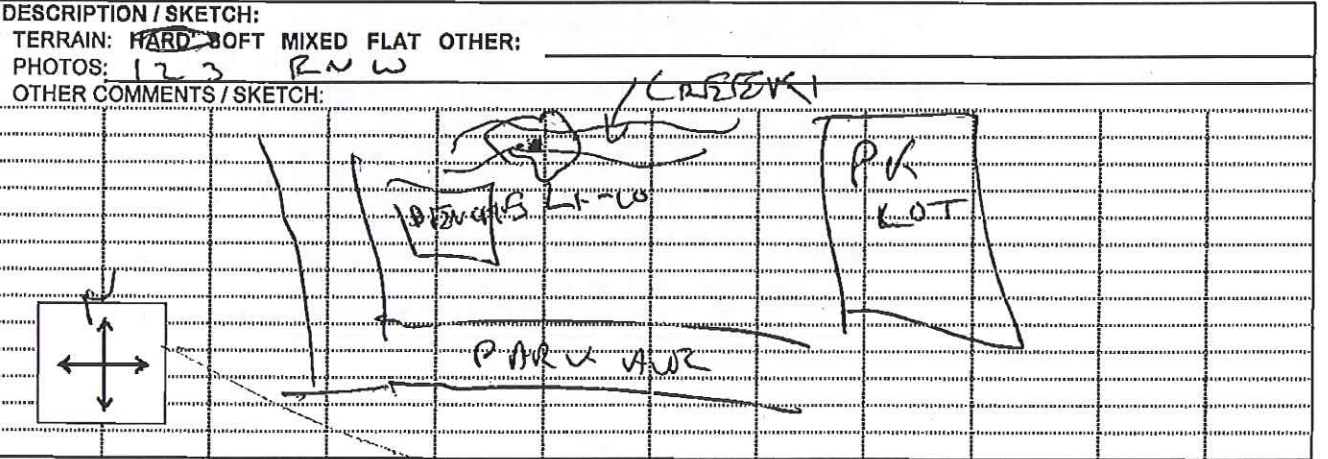 DESCRIPTION / SKETCH:
TERRAIN: HARD SOFT MIXED FLAT OTHER:
PHOTOS: 1 2 3 RNW
OTHER COMMENTS / SKETCH:
CREEK
PK
LOT
N
PARK AVE